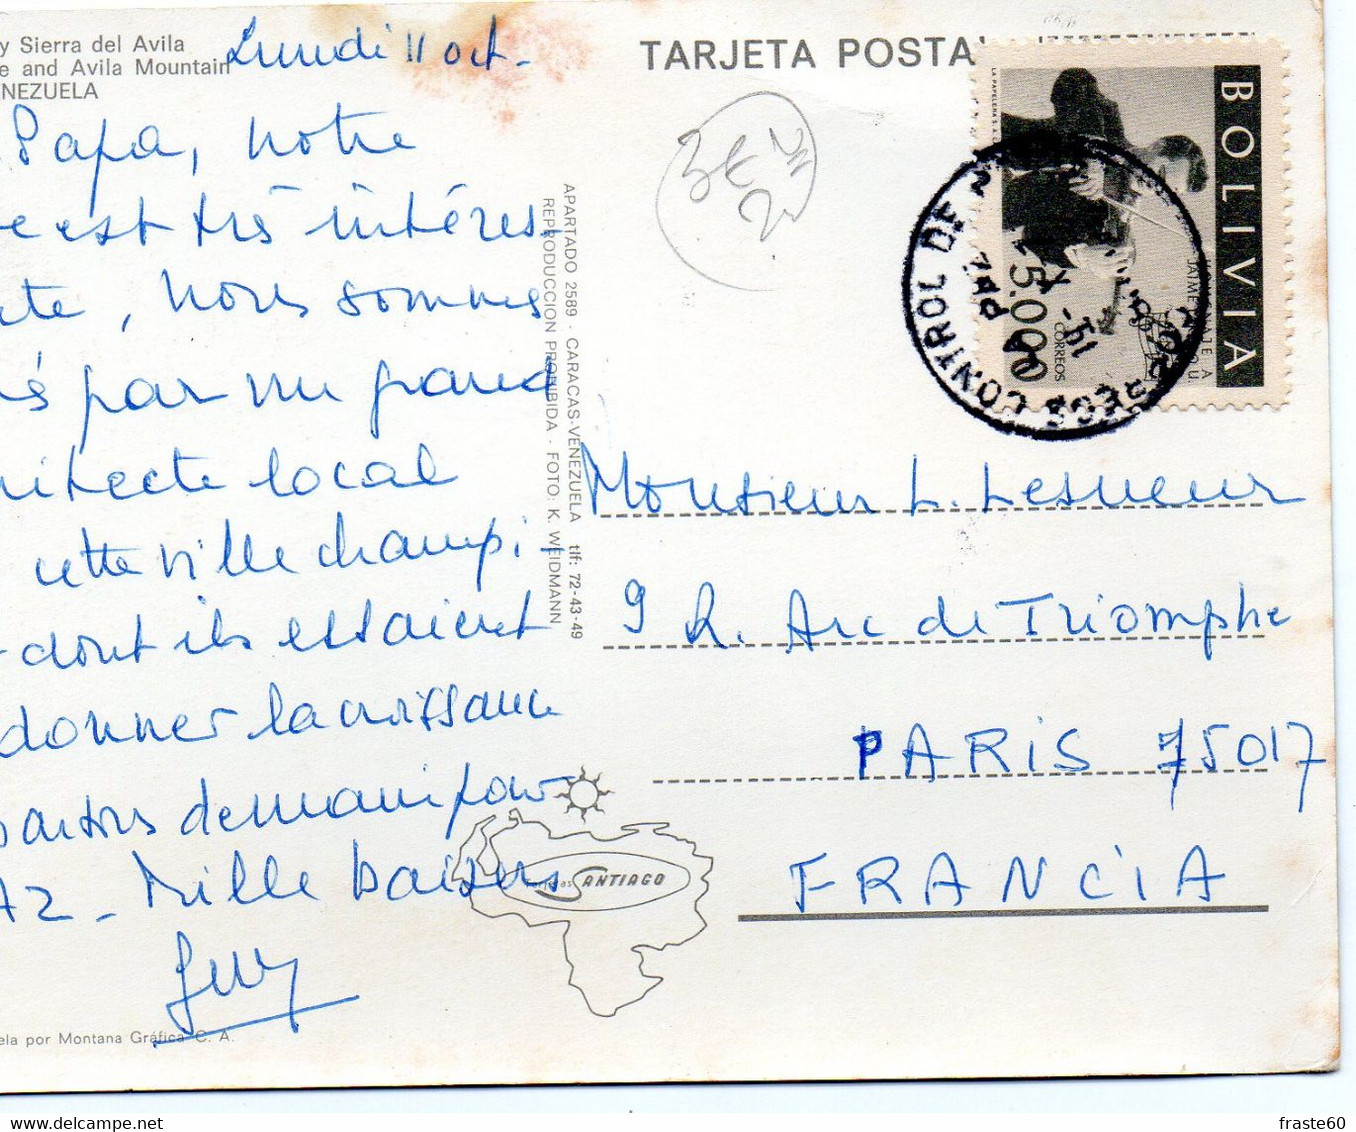 y Sierra del Avila
e and Avila Mountain
NEZUELA
Lundi 11 oct.
Papa, notre
e est très intéres
te, nous sommes
és par un grand
hitecte local
cette ville champi-
dont ils essaient
donner la croissance
partons demain pour
AZ - Mille baisers
Guy
ela por Montana Gráfica C. A.
APARTADO 2589 · CARACAS-VENEZUELA tlf: 72-43-49
REPRODUCCION PROHIBIDA · FOTO: K. WEIDMANN
SANTIAGO
TARJETA POSTAL
BOLIVIA
HOMENAJE A
JAIME
5.000
CORREOS
LA PAPELERA S.A.
CORREOS CONTROL DE
LA PAZ
Monsieur L. Lesueur
9 R. Arc de Triomphe
PARIS 75017
FRANCIA
fraste60